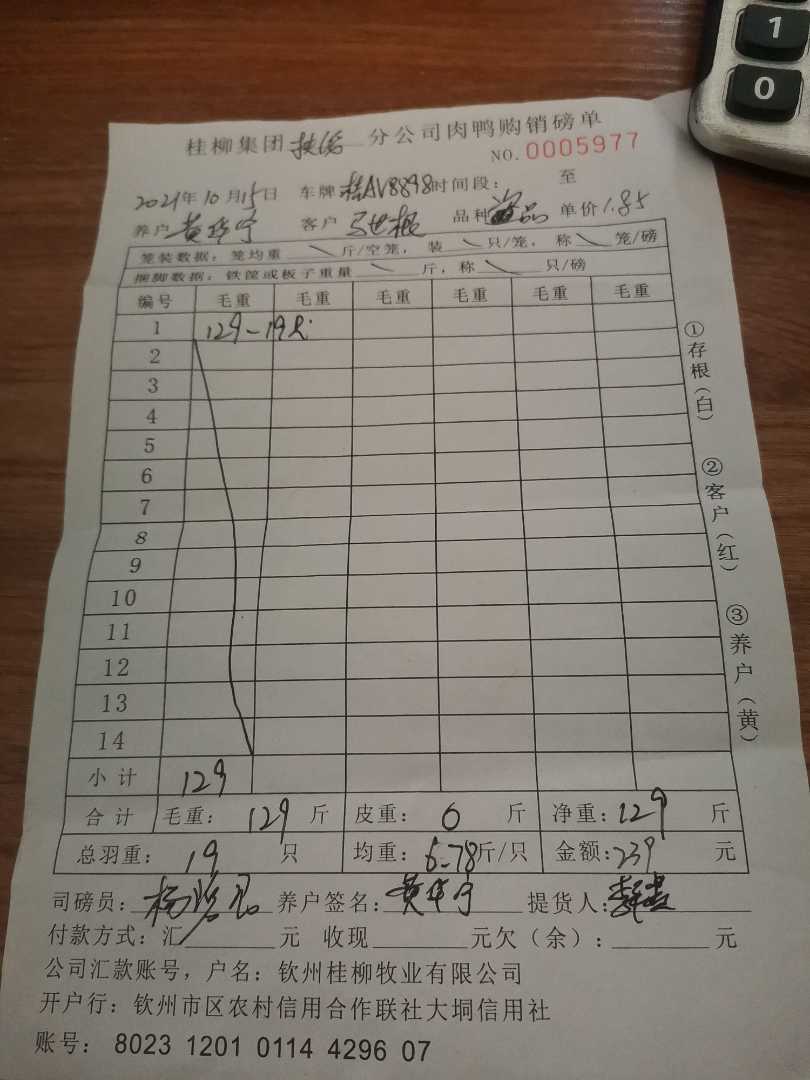 1
0
桂柳集团扶绥分公司肉鸭购销磅单
NO. 0005977
2021年10月15日 车牌桂AV8898时间段: 至
养户 客户 品种 品 单价1.85
笼装数据: 笼均重 斤/空笼, 装 只/笼, 称 笼/磅
捆脚数据: 铁筐或板子重量 斤, 称 只/磅
编号 毛重 毛重 毛重 毛重 毛重 毛重
1 129-19只
2
3
4
5
6
7
8
9
10
11
12
13
14
小计 129
合计 毛重: 129 斤 皮重: 0 斤 净重: 129 斤
总羽重: 19 只 均重: 6.78斤/只 金额: 239 元
司磅员: 养户签名: 提货人:
付款方式: 汇 元 收现 元欠(余): 元
公司汇款账号, 户名: 钦州桂柳牧业有限公司
开户行: 钦州市区农村信用合作联社大垌信用社
账号: 8023 1201 0114 4296 07
①存根(白)
②客户(红)
③养户(黄)